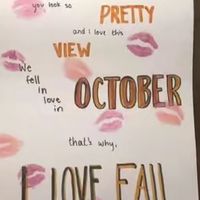 you look so
PRETTY
and I love this
VIEW
We
fell
in
love
in
OCTOBER
that's why,
I LOVE FALL